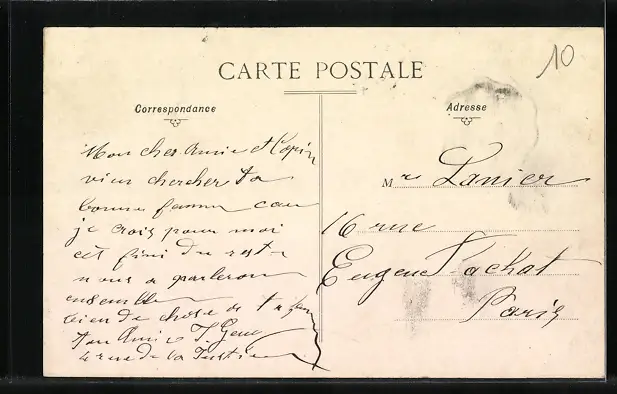 10
CARTE POSTALE
Correspondance
Adresse
Mon cher Amie et Copin
vien chercher ta
bonne femme car
je crois pour moi
cet fini du reste
nous a parleron
ensemble
bien de chose a ta fem
ton Amie
4 rue de la
Mre Lanier
16 rue
Eugene
Paris